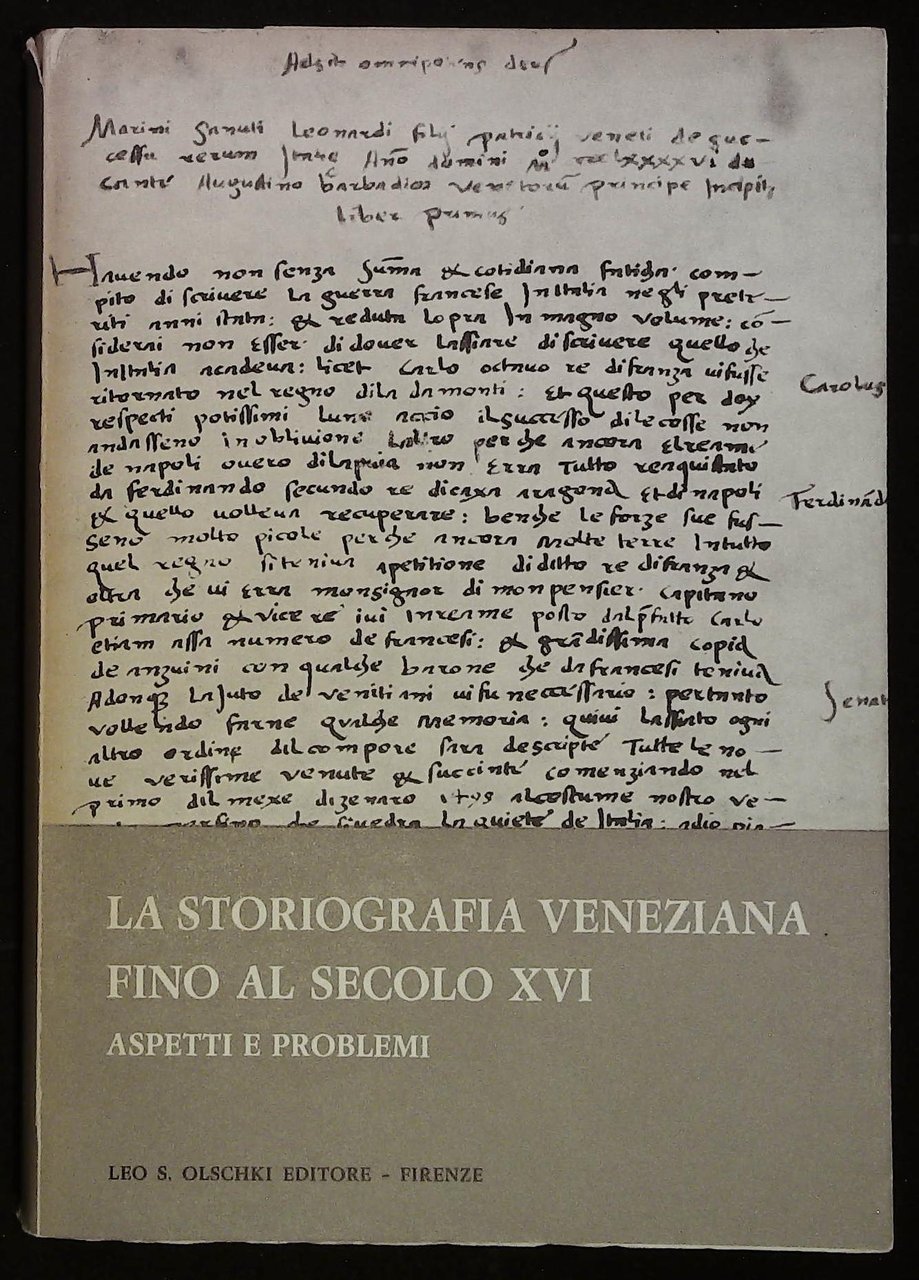 Adsit omnipotens deus
Marini Sanuti Leonardi filij patricij veneti de suc-
cessu rerum Italię Año domini Mº cccclxxxxvi du
cante Augustino barbadico venetorũ principe Incipit
liber primus
Havendo non senza suma & cotidiana faticha com-
pito di scrivere la guerra francese In Italia negli prete-
riti anni stata: & reduta lopra In magno volume: cõ-
siderai non esser di dover lassiare di scrivere quello che
In Italia acadeva: licet Carlo octavo re di franza vi fusse
ritornato nel regno di la da monti: Et questo per doy
respecti potissimi luno accio il successo di le cosse non
andasseno in oblivione laltro perche ancora el reame
de napoli overo di la puia non erra tutto reaquistato
da ferdinando secundo re di caxa aragona Et di napoli
& quello volleva recuperare: benche le forze sue fus-
seno molto picole perche ancora molte terre In tutto
quel regno si teniva a petitione di ditto re di franza &
oltra che vi erra monsignor di monpensier capitano
primario & vice re ivi In reame posto dal p̃fatto Carlo
etiam assa numero de francesi: & grãdissima copia
de anzuini con qualche barone che da francesi teniva
Adonq; lajuto de venitiani vi fu necessario: pertanto
vollendo farne qualche memoria: quivi lassiato ogni
altro ordine dil compore sara descripte Tutte le no-
ve verissime venute & succinte comenziando nel
primo dil mexe di zenaro 1495 al costume nostro ve-
la quiete de Italia: adio pia-
Carolus
Ferdinãd
Senat
LA STORIOGRAFIA VENEZIANA
FINO AL SECOLO XVI
ASPETTI E PROBLEMI
LEO S. OLSCHKI EDITORE - FIRENZE